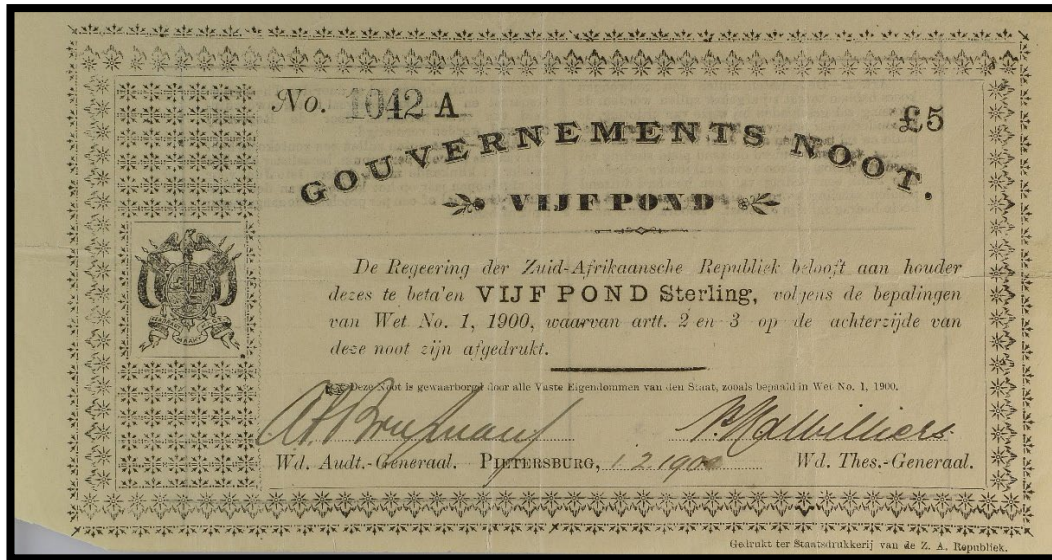 No. 1042 A
£5
GOUVERNEMENTS NOOT.
VIJF POND
De Regeering der Zuid-Afrikaansche Republiek belooft aan houder
dezes te beta'en VIJF POND Sterling, volgens de bepalingen
van Wet No. 1, 1900, waarvan artt. 2 en 3 op de achterzijde van
deze noot zijn afgedrukt.
Deze Noot is gewaarborgd door alle Vaste Eigendommen van den Staat, zooals bepaald in Wet No. 1, 1900.
Wd. Audt.-Generaal. PIETERSBURG, 1.2.1900 Wd. Thes.-Generaal.
Gedrukt ter Staatsdrukkerij van de Z. A. Republiek.